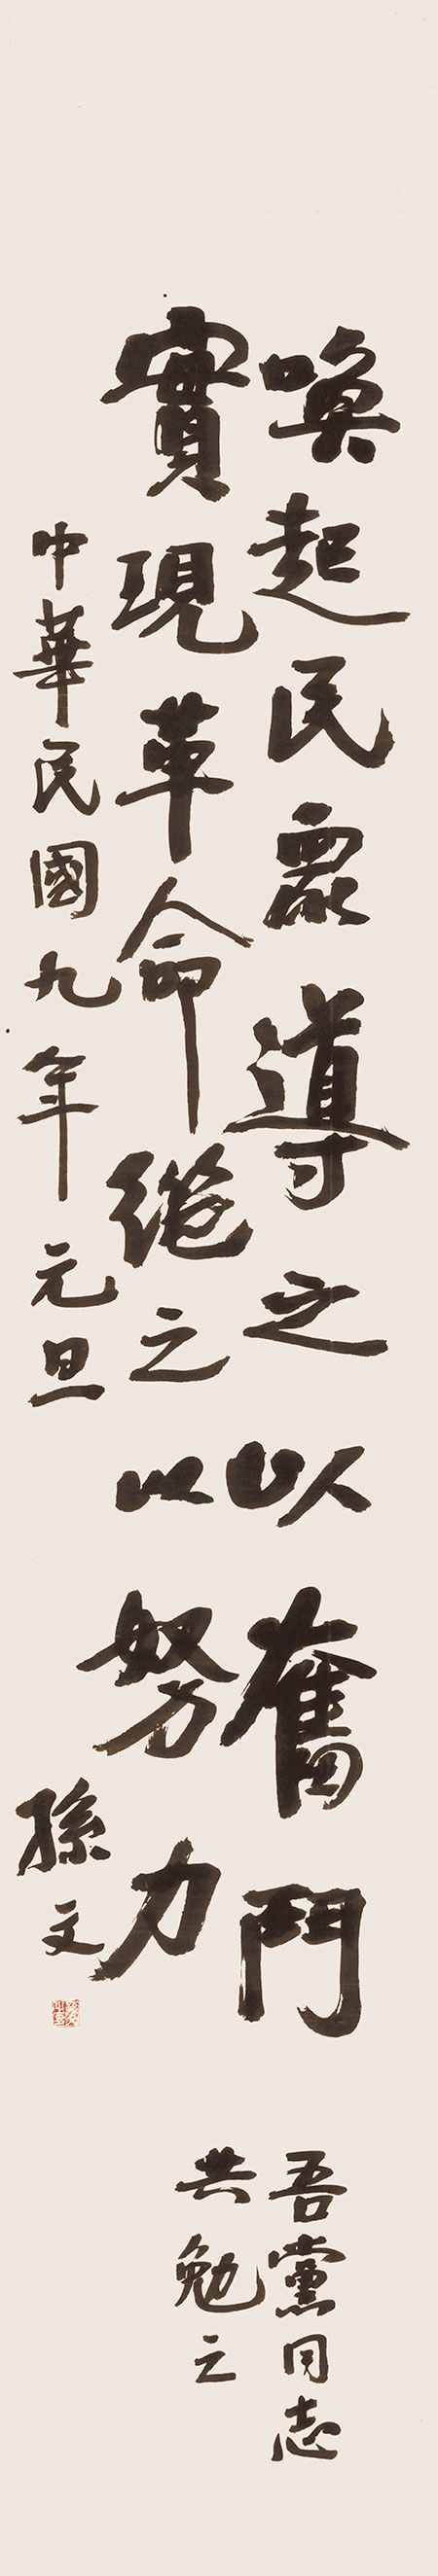 喚起民衆導之以奮鬥
實現革命繼之以努力
吾黨同志
共勉之
中華民國九年元旦
孫文